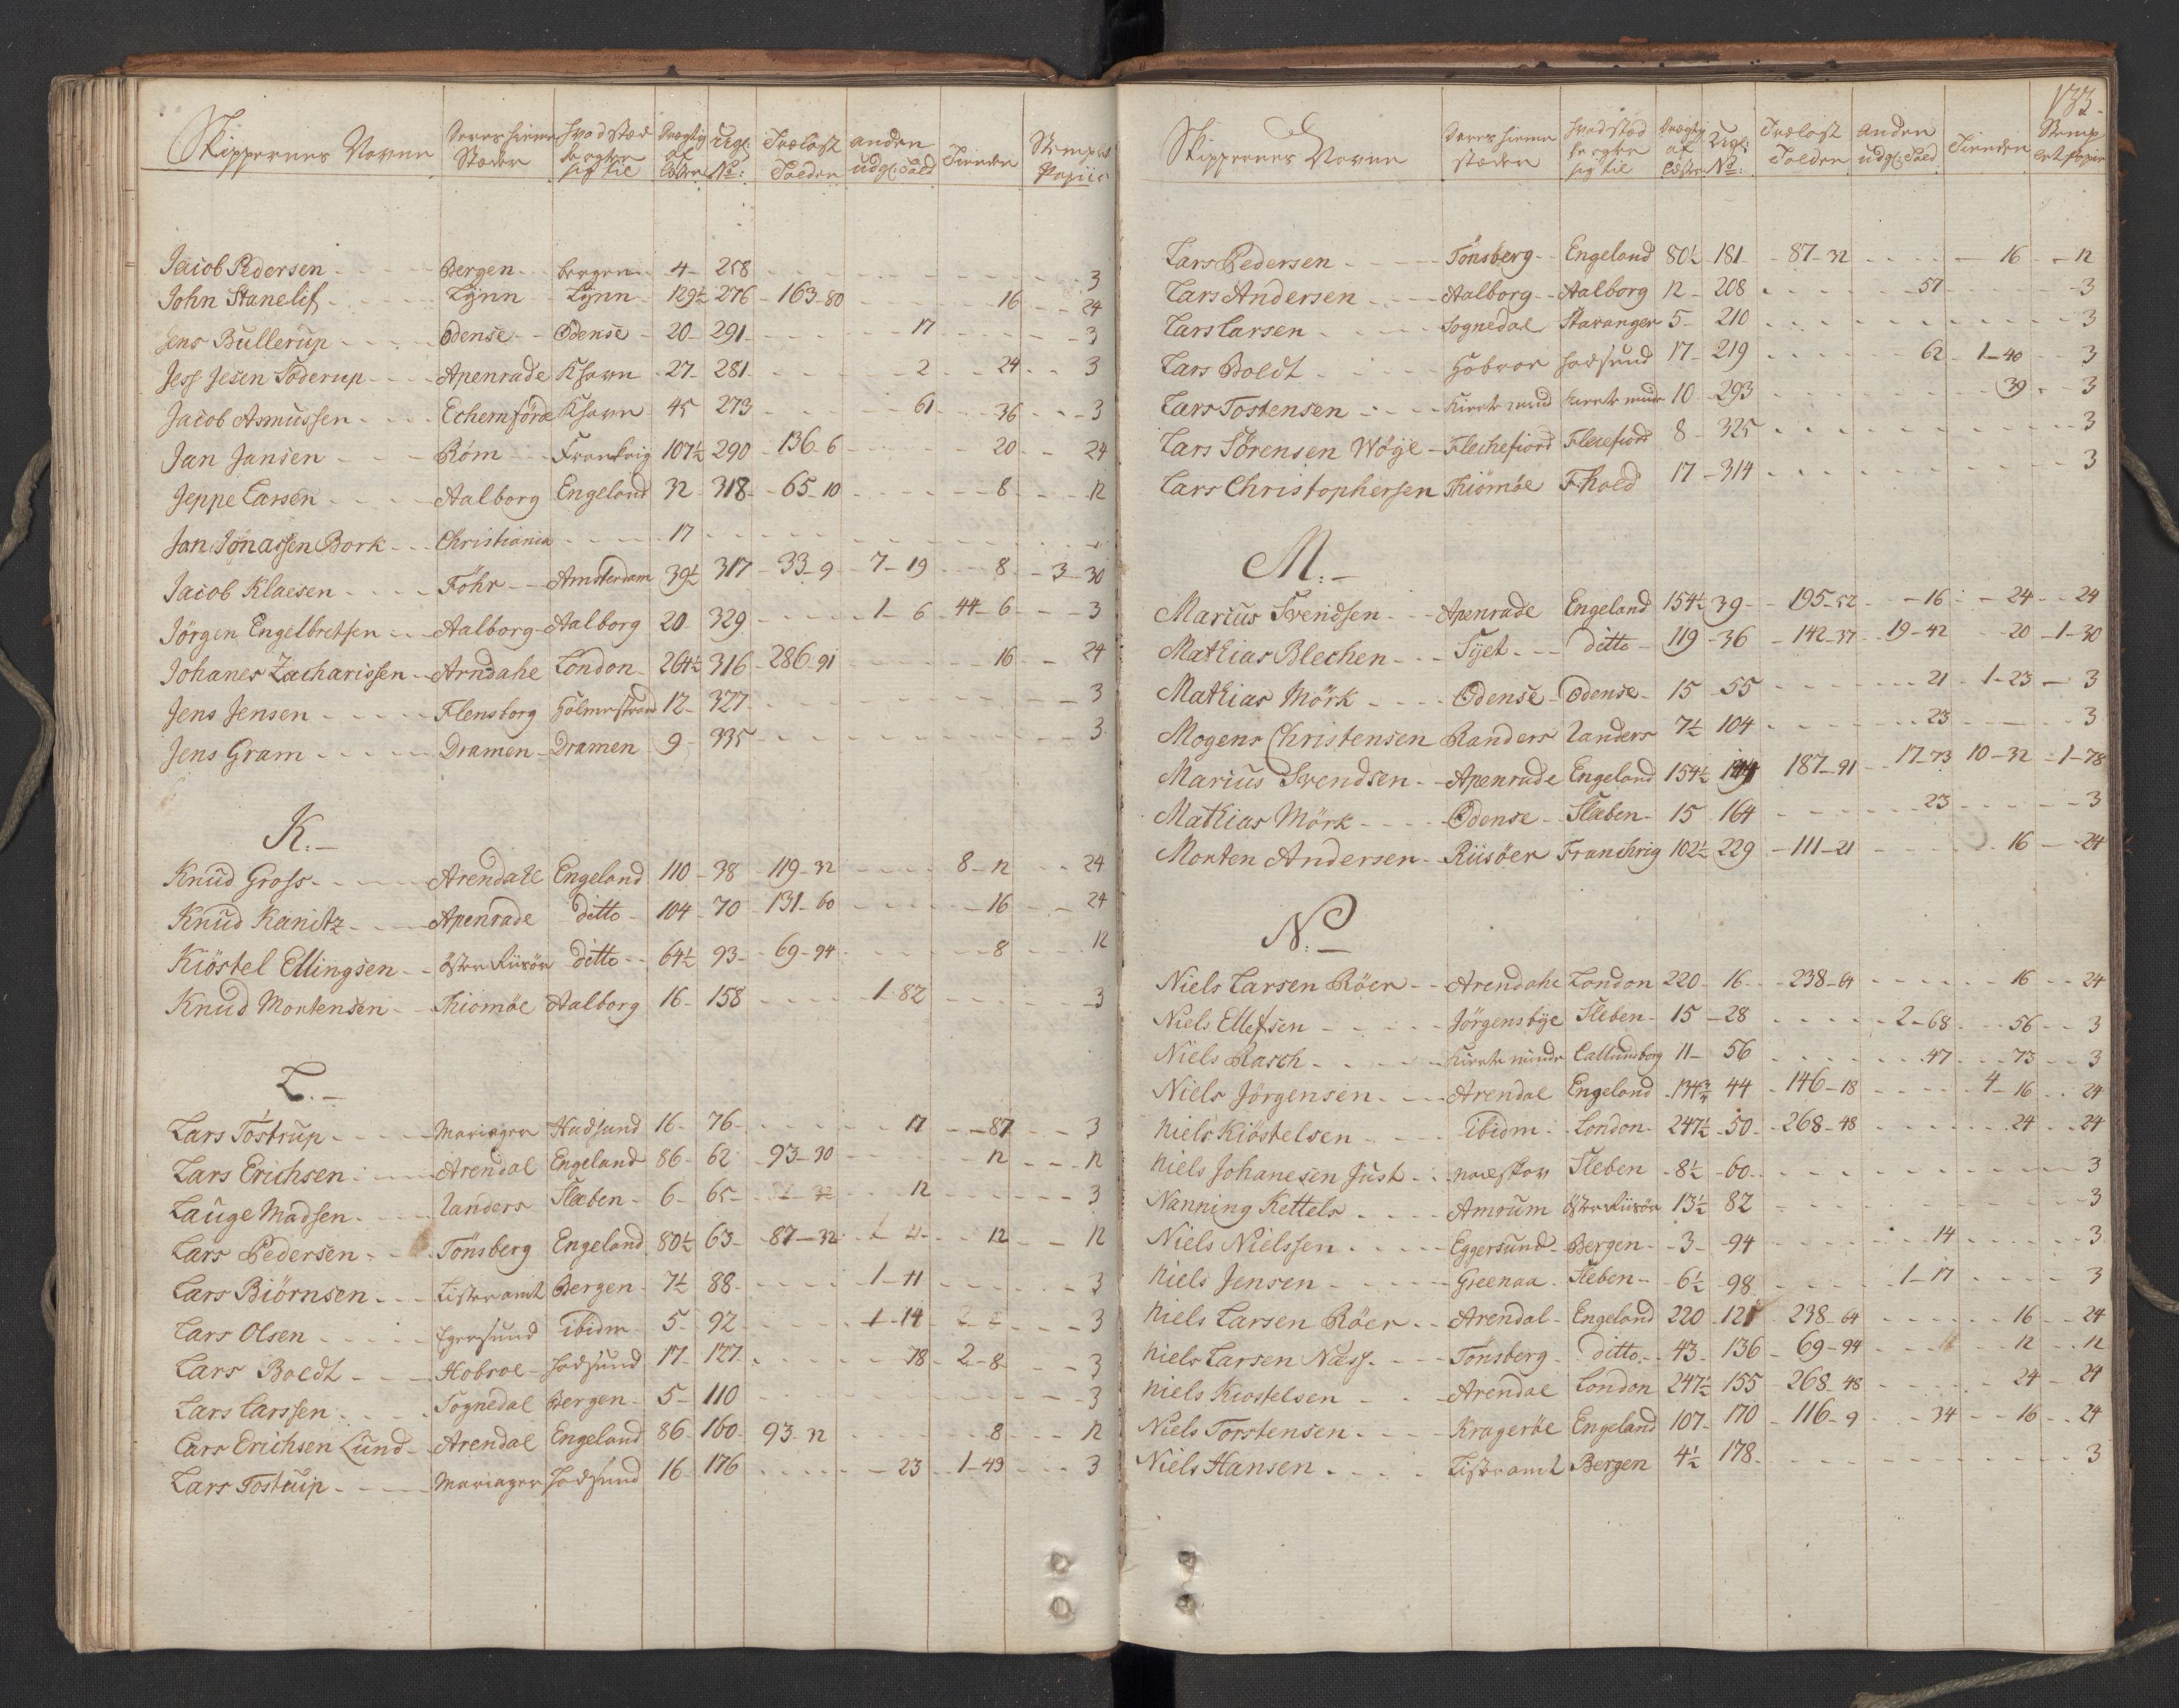 Skippernes Navne | Deres hiem Stæder | hvad stæd de agter sig til | Drægtig af Læster | Udgl: No: | Trælast Tolden | anden udgl: Told | Tienden | Stemp Papiir
Jacob Pedersen - Bergen - bergen - 4 - 258 - 3
John Stanelif - Lÿnn - Lÿnn - 129½ 276 - 163-80 - 16 - 24
Jens Bullerup - Odense - Odense - 20 - 291 - 17 - 3
Jess Jesen Töderup - Apenrade Khavn - 27 - 281 - 2 - 24 - 3
Jacob Asmussen - Echernförde Khavn - 45 273 - 61 - 36 - 3
Jan Jansen - Röm - Frankrig 107½ 290 - 136-6 - 20 - 24
Jeppe Larsen - Aalborg Engeland 32 - 318 - 65-10 - 8 - 12
Jan Jönassen Bork - Christiania - 17
Jacob Klaesen - Föhr - Amsterdam 39½ 317 - 33-9 - 7-19 - 8 - 3-30
Jörgen Engelbretsen - Aalborg - Aalborg 20 - 329 - 1-6 44-6 - 3
Johanes Zacharissen - Arndahe London - 264½ 316 - 286-91 - 16 - 24
Jens Jensen - Flensborg Holmestrand 12 - 327 - 3
Jens Gram - Dramen - Dramen 9 - 335 - 3
K.-
Knud Gross - Arendahl Engeland 110 - 38 - 119-32 - 8-12 - 24
Knud Kanitz - Apenrade ditto - 104 - 70 - 131-60 - 16 - 24
Kiöstel Ellingsen - Öster Riisöer ditto - 64½ 93 - 69-94 - 8 - 12
Knud Mortensen - Thiomöe Aalborg 16 - 158 - 1-82 - 3
L.-
Lars Töstrup - Mariager Hadsund 16 - 76 - 17 - 87 - 3
Lars Erichsen - Arendal Engeland 86 - 62 - 93-30 - 12 - 12
Lauge Madsen - Randers Sleben - 6 - 65 - 12 - 3
Lars Pedersen - Tönsberg Engeland 80½ 63 - 87-32 - 12 - 12
Lars Biörnsen - Lister amt Bergen - 7½ 88 - 1-11 - 3
Lars Olsen - Egersund ibidm - 5 - 92 - 1-14 - 3
Lars Boldt - Hobroe - Hadsund 17 - 127 - 78 - 2-8 - 3
Lars Larssen - Sognedal Bergen - 5 - 110 - 3
Lars Erichsen Lund - Arendal Engeland 86 - 160 - 93-32 - 8 - 12
Lars Tostrup - Mariager Hadsund 16 - 176 - 23 - 1-49 - 3
133.
Skippernes Navne | Deres hiem stæder | hvad stæd de agter sig til | Drægtig af Læster | Udgl: No: | Trælast Tolden | anden udgl: Told | Tienden | Stempelt Papiir
Lars Pedersen - Tönsberg - Engeland 80½ 181 - 87-32 - 16 - 12
Lars Andersen - Aalborg - Aalborg 12 - 208 - 57 - 3
Lars Larsen - Sognedal Stavanger 5 - 210 - 3
Lars Boldt - Hobroe Hadsund 17 - 219 - 62 - 1-40 - 3
Lars Tostensen - Kierteminde Kierteminde 10 - 293 - 39 - 3
Lars Sörensen Wöge - Flechefiord Flechefiord 8 - 325 - 3
Lars Christophersen Thiömöe F:hald 17 - 314 - 3
M.-
Marius Svendsen - Apenrade Engeland 154½ 39 - 195-52 - 16 - 24 - 24
Mathias Blechen - Sÿet - ditto - 119 - 36 - 142-37 - 19-42 - 20 - 1-30
Mathias Mörk - Odense - Odense - 15 - 55 - 21 - 1-23 - 3
Mogens Christensen Randers Randers 7½ 104 - 23 - 3
Marius Svendsen - Apenrade Engeland 154½ 144 187-91 - 17-73 10-32 - 1-78
Mathias Mörk - Odense - Sleben - 15 - 164 - 23 - 3
Morten Andersen - Riisöer Franchrig 102½ 229 - 111-21 - 16 - 24
N.-
Niels Larsen Röer - Arendahe London 220 - 16 - 238-64 - 16 - 24
Niels Ellefsen - Jörgensbÿe Sleben - 15 - 28 - 2-68 - 56 - 3
Niels Rasch - Kierteminde Callundborg 11 - 56 - 47 - 73 - 3
Niels Jörgensen - Arendal Engeland - 134¾ 44 - 146-18 - 4-16 - 24
Niels Kiöstelsen - ibidm: London - 247½ 50 - 268-48 - 24 - 24
Niels Johanesen Just - Sleben - 8½ - 60 - 3
Nanning Kettels - Amrum Öster Riisöer 13½ 82 - 3
Niels Nielssen - Eggersund - Bergen - 3 - 94 - 14 - 3
Niels Jensen - Greenaa - Sleben - 6½ - 98 - 1-17 - 3
Niels Larsen Röer - Arendal - Engeland 220 121 238-64 - 16 - 24
Niels Larsen Næss - Tönsberg - ditto - 43 - 136 - 69-94 - 12 - 12
Niels Kiostelsen - Arendal London 247½ 155 - 268-48 - 24 - 24
Niels Torstensen - Krageröe Engeland 107 - 170 - 116-9 - 34 - 16 - 24
Niels Hansen - Lister amt Bergen 4½ 178 - 3